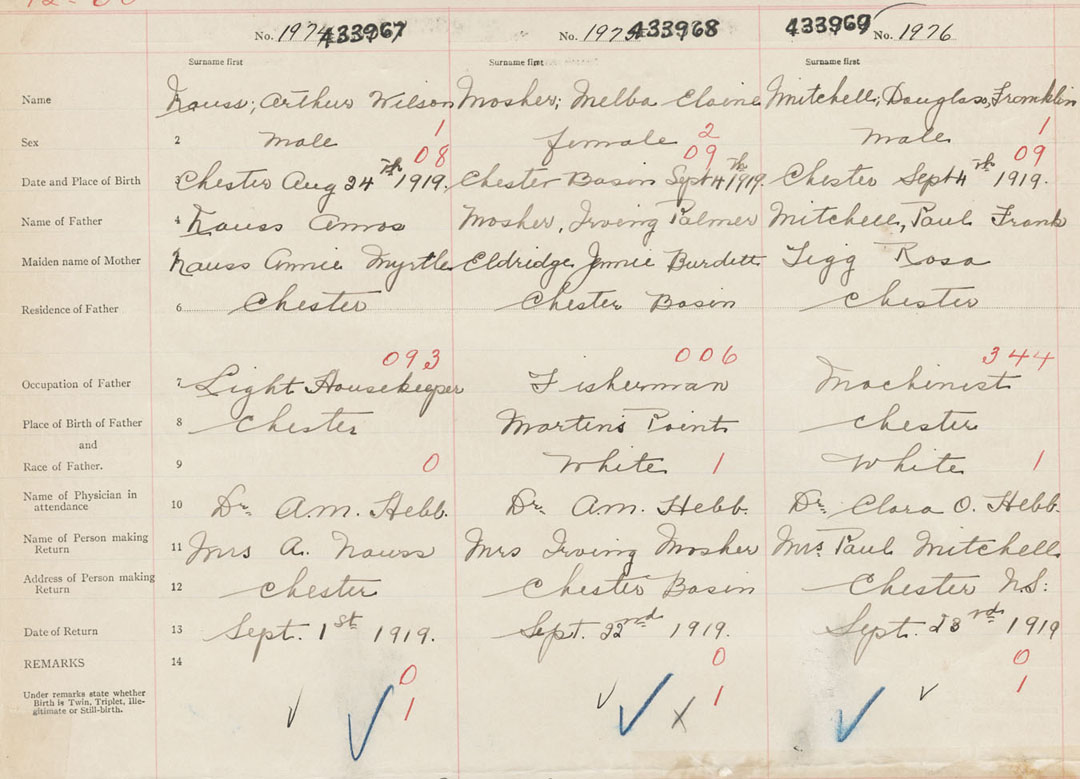 12-00
No. 1974 433967 No. 1975 433968 433969 No. 1976
Surname first Surname first Surname first
Name Nauss; Arthur Wilson Mosher; Melba Elaine Mitchell; Douglass Fromklin
1 2 1
Sex 2 male female male
08 09 09
Date and Place of Birth 3 Chester Aug 24th 1919. Chester Basin Sept 4th 1919. Chester Sept 4th 1919.
Name of Father 4 Nauss Amos Mosher, Irving Palmer Mitchell, Paul Frank
Maiden name of Mother Nauss Annie Myrtle Eldridge Jennie Burdett Tigg Rosa
Residence of Father 6 Chester Chester Basin Chester
093 006 344
Occupation of Father 7 Light Housekeeper Fisherman Machinist
Place of Birth of Father 8 Chester Martin's Point Chester
and
Race of Father. 9 0 White 1 White 1
Name of Physician in attendance 10 Dr. A.M. Hebb. Dr. A.M. Hebb. Dr. Clara O. Hebb.
Name of Person making Return 11 Mrs A. Nauss Mrs Irving Mosher Mrs. Paul Mitchell
Address of Person making Return 12 Chester Chester Basin Chester N.S.
Date of Return 13 Sept. 1st 1919. Sept. 22nd 1919. Sept. 23rd 1919
REMARKS 14 0 0 0
Under remarks state whether Birth is Twin, Triplet, Ille-
gitimate or Still-birth. 1 1 1